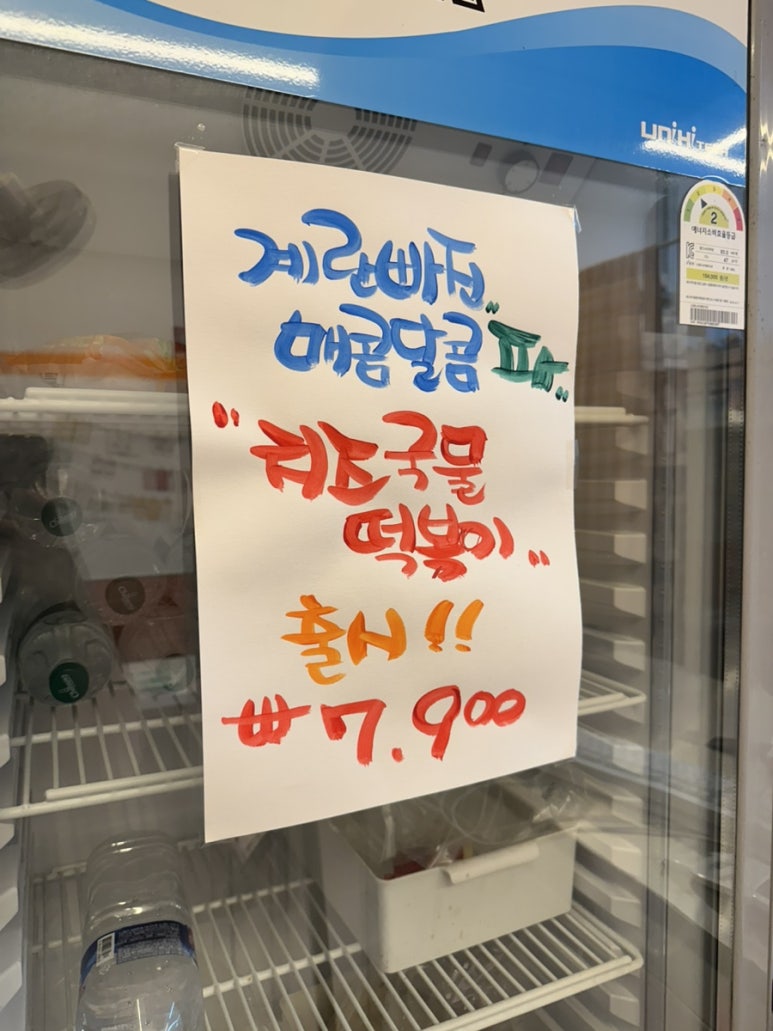 계란빠진
매콤달콤
국물
떡볶이"
출시!!
₩7.900
2
에너지소비효율등급